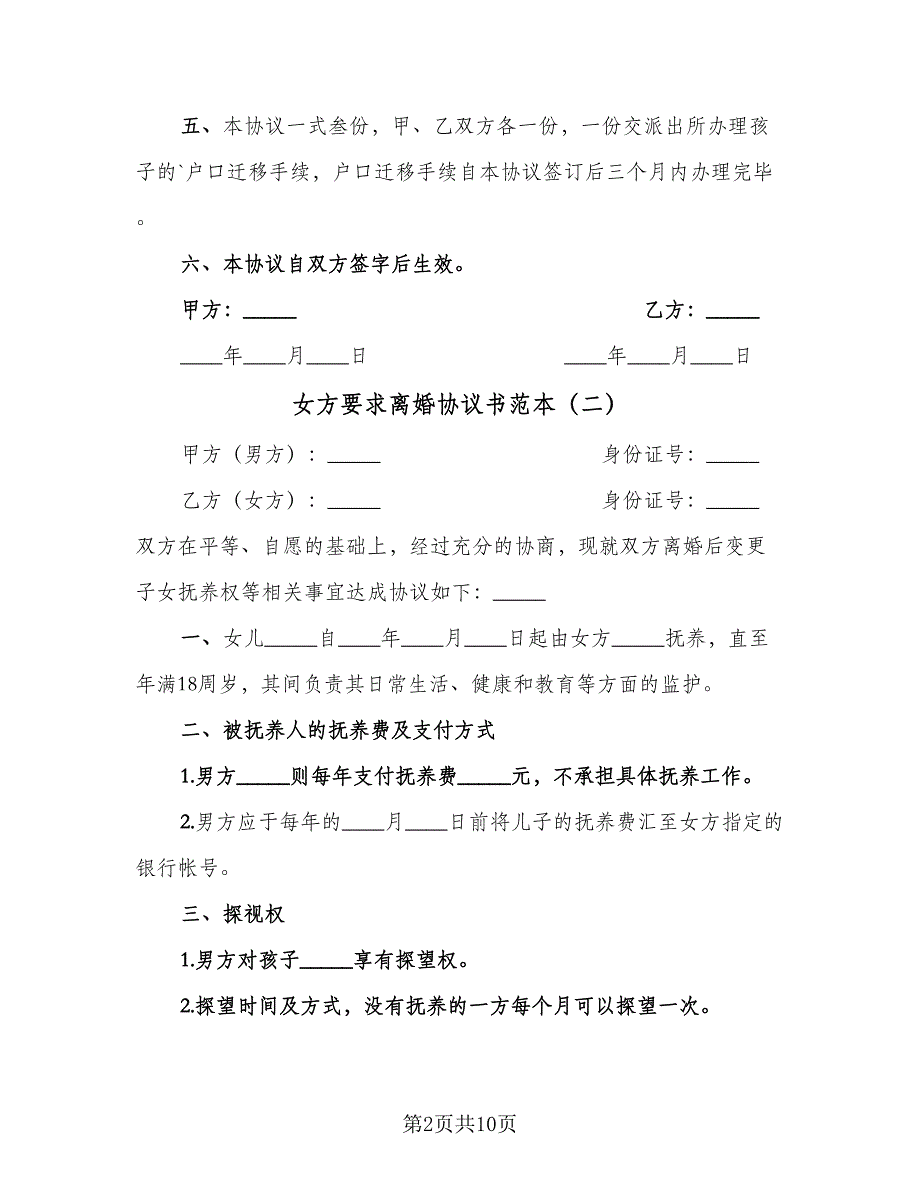 五、本协议一式叁份，甲、乙双方各一份，一份交派出所办理孩
子的`户口迁移手续，户口迁移手续自本协议签订后三个月内办理完毕
。
六、本协议自双方签字后生效。
甲方：_____ 乙方：_____
____年____月____日 ____年____月____日
女方要求离婚协议书范本（二）
甲方（男方）：_____ 身份证号：_____
乙方（女方）：_____ 身份证号：_____
双方在平等、自愿的基础上，经过充分的协商，现就双方离婚后变更
子女抚养权等相关事宜达成协议如下：_____
一、女儿_____自____年____月____日起由女方_____抚养，直至
年满18周岁，其间负责其日常生活、健康和教育等方面的监护。
二、被抚养人的抚养费及支付方式
1.男方_____则每年支付抚养费_____元，不承担具体抚养工作。
2.男方应于每年的____月____日前将儿子的抚养费汇至女方指定的
银行帐号。
三、探视权
1.男方对孩子_____享有探望权。
2.探望时间及方式，没有抚养的一方每个月可以探望一次。
第2页共10页